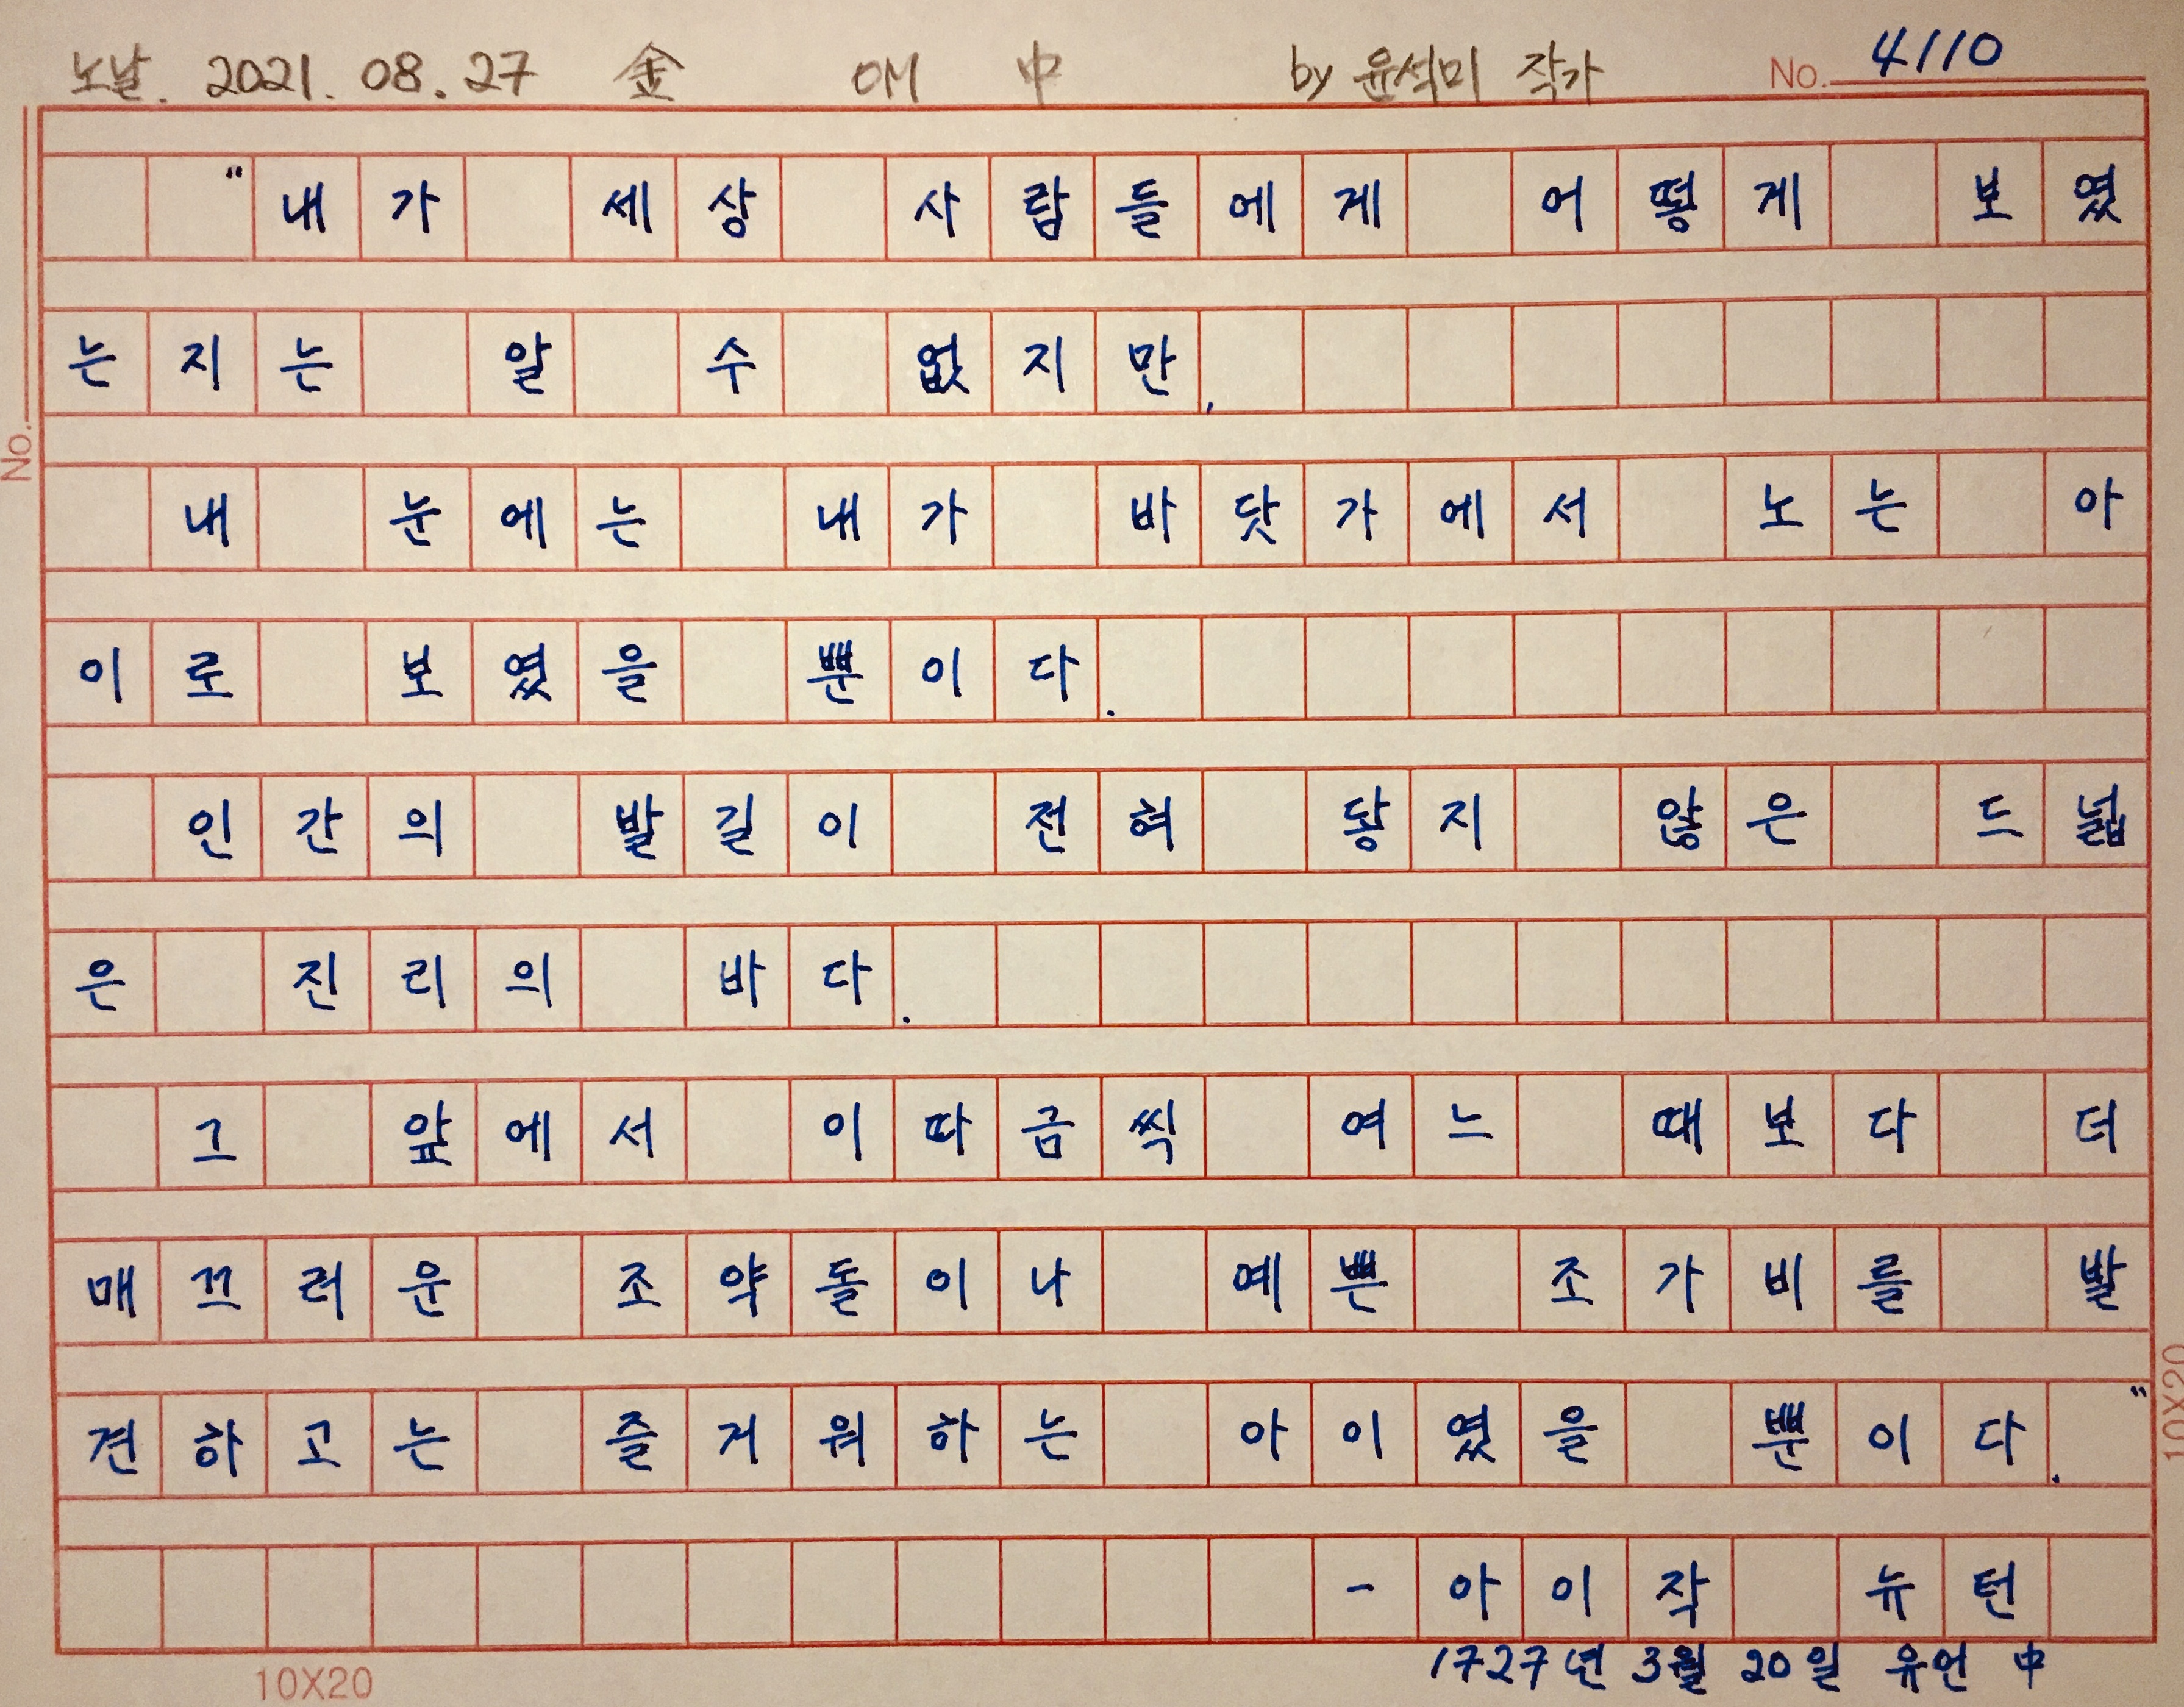 노날. 2021. 08. 27 金 OM 中 by 윤석미 작가 No. 4110
"내가 세상 사람들에게 어떻게 보였
는지는 알 수 없지만,
내 눈에는 내가 바닷가에서 노는 아
이로 보였을 뿐이다.
인간의 발길이 전혀 닿지 않은 드넓
은 진리의 바다.
그 앞에서 이따금씩 여느 때보다 더
매끄러운 조약돌이나 예쁜 조가비를 발
견하고는 즐거워하는 아이였을 뿐이다."
- 아이작 뉴턴
1727년 3월 20일 유언 中
10X20
No.
10X20